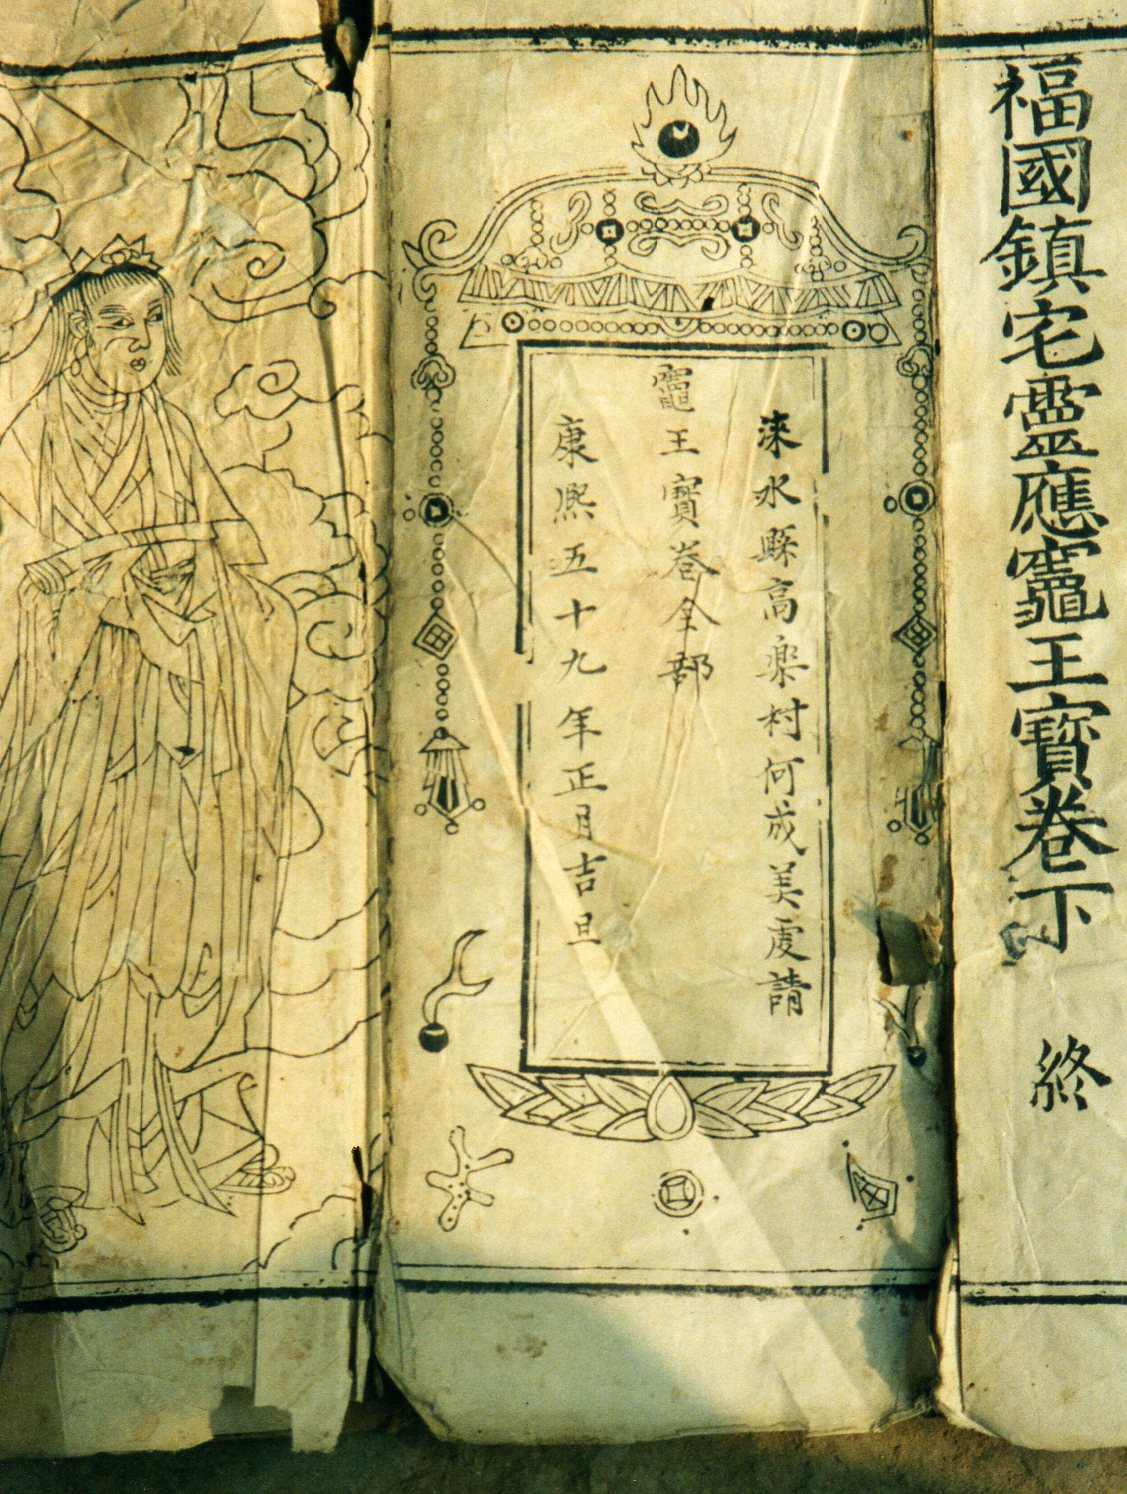 福國鎮宅靈應竈王寶卷下 終
淶水縣高樂村何成美虔請
竈王寶卷全部
康熙五十九年正月吉旦